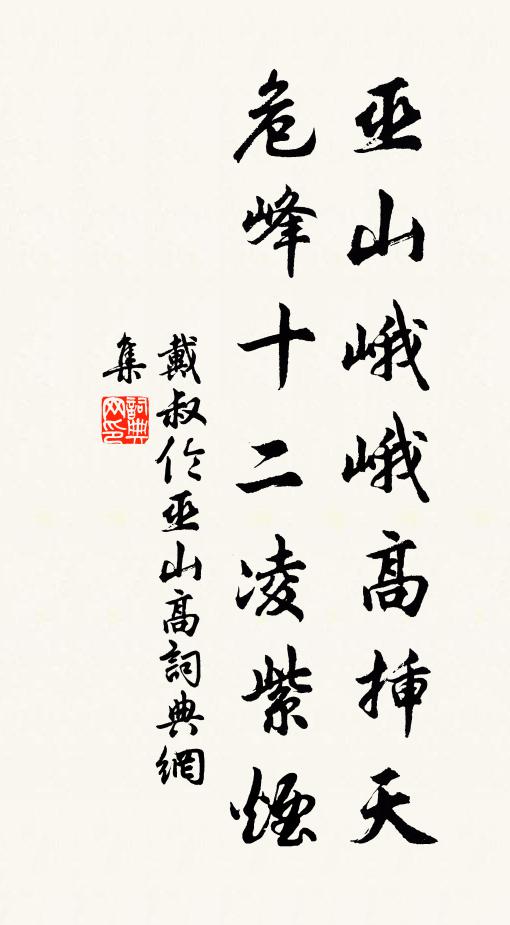 巫山峨峨高插天
危峰十二凌紫煙
戴叔伦巫山高詞典網
集
詞典網印